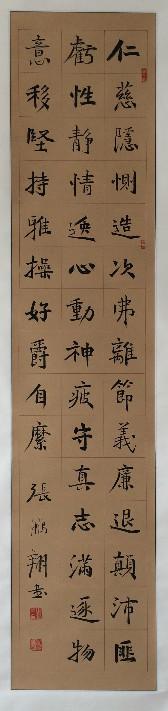 仁慈隱惻造次弗離節義廉退顛沛匪
虧性靜情逸心動神疲守真志滿逐物
意移堅持雅操好爵自縻張鵬翔書